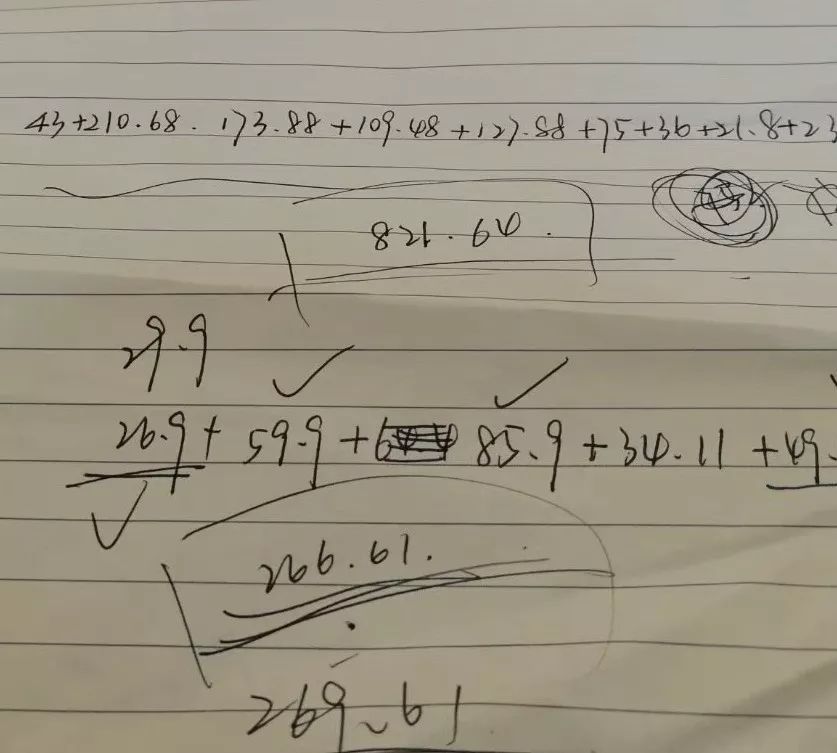 43+210.68.173.88+109.48+127.88+75+36+21.8+23
821.64.
29.9
26.9+59.9+6 85.9+34.11+49.
266.61.
269.61